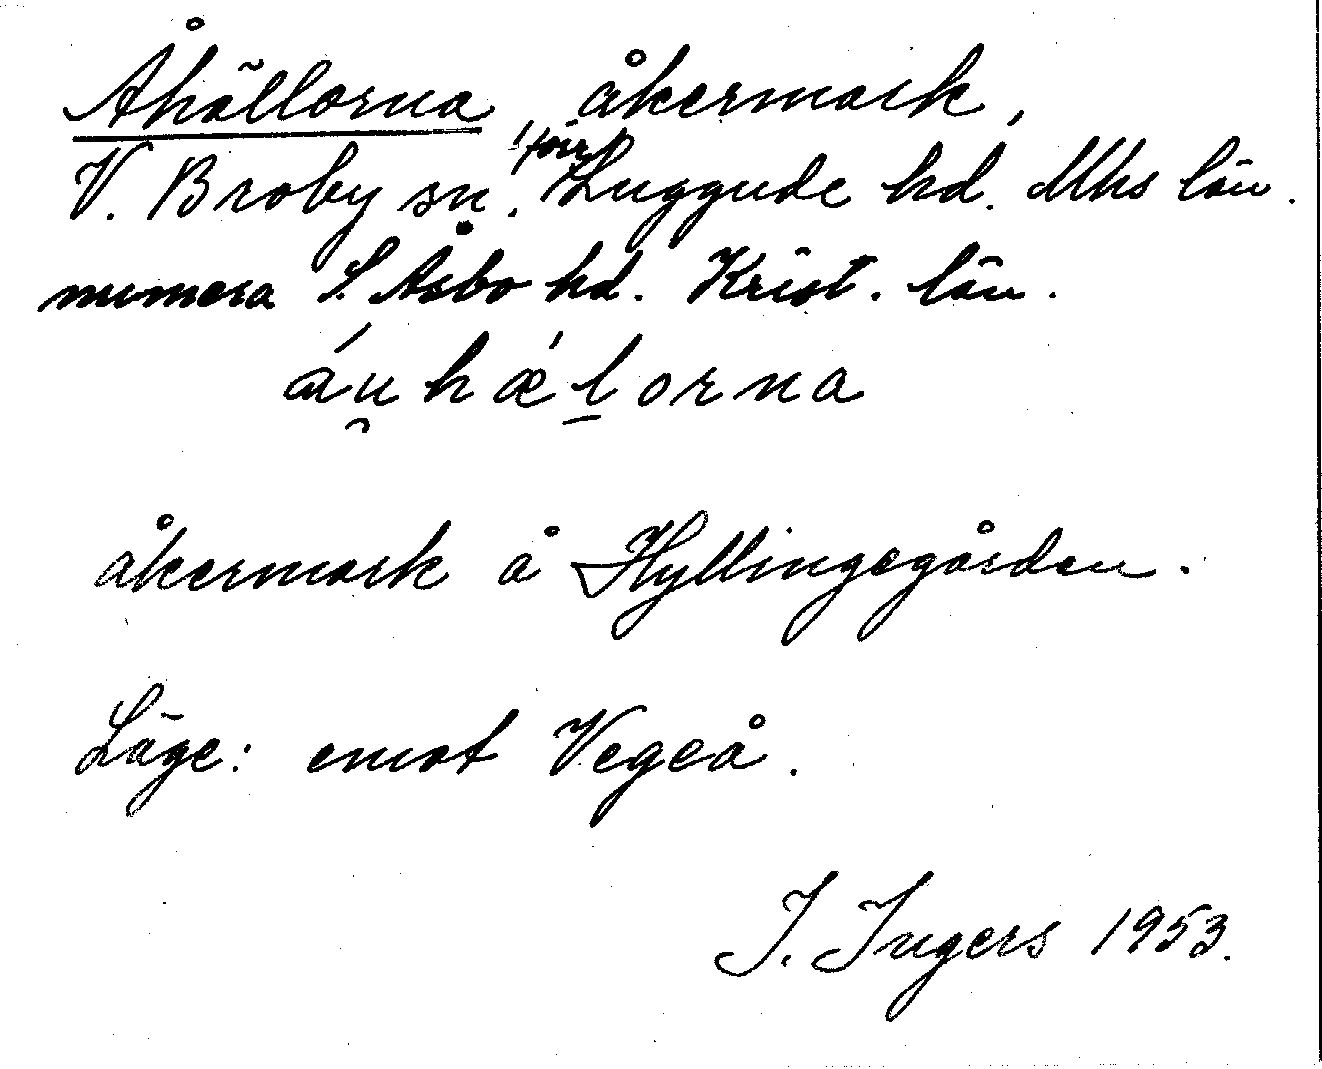 Åhällorna, åkermark,
V. Broby sn, förr Luggude hd. Mhs län.
numera S. Åsbo hd. Krist. län.
áu̯hǽl̲orna
åkermark å Hyllingegården.
Läge: emot Vegeå.
I. Ingers 1953.